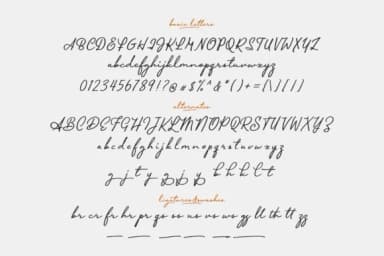 basic letters
ABCDEFGHIJKLMNOPQRSTUVWXYZ
abcdefghijklmnopqrstuvwxyz
0123456789!?@#$%^&*()+={\}[/]
alternates
ABCDEFGHIJKLMNOPQRSTUVWXYZ
abcdefghijklmnopqrstuvwxyz
g j t y g j y b h k l t
ligatures&swashes
br cr fr hr pr go os us vs ws yy ll th tt zz